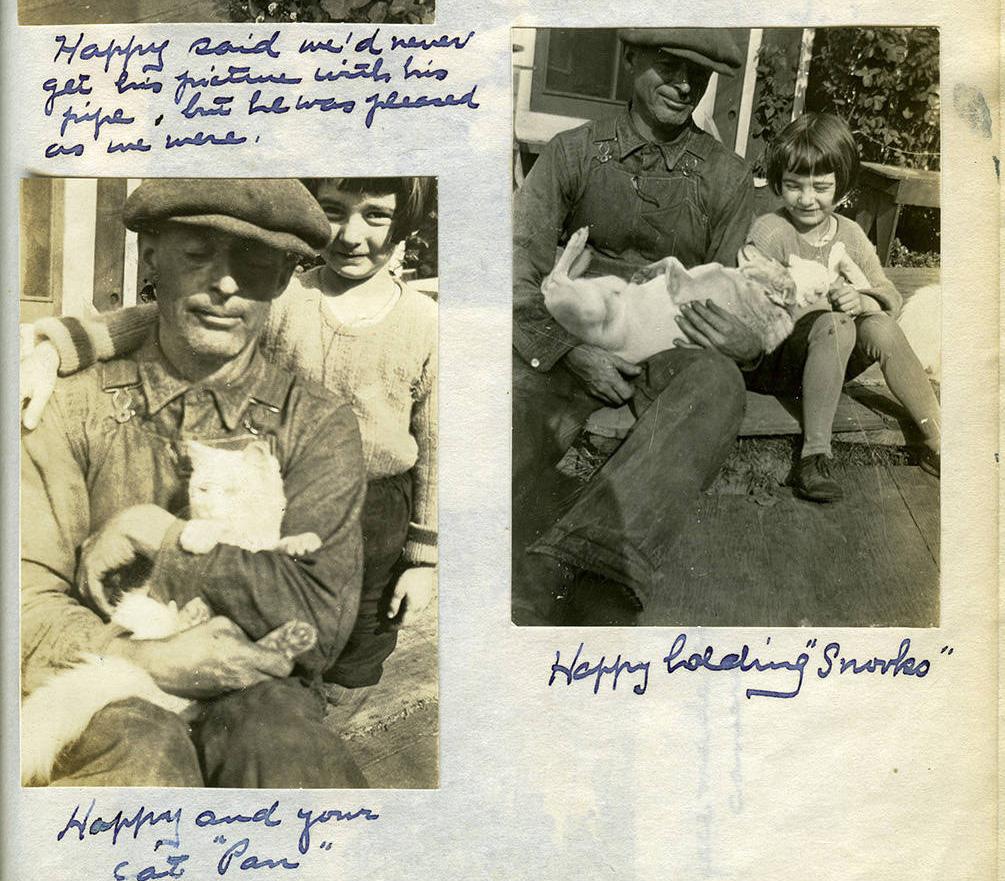 Happy said we'd never
get his picture with his
pipe, but he was pleased
as we were.
Happy holding "Snooks"
Happy and your
cat "Pan"